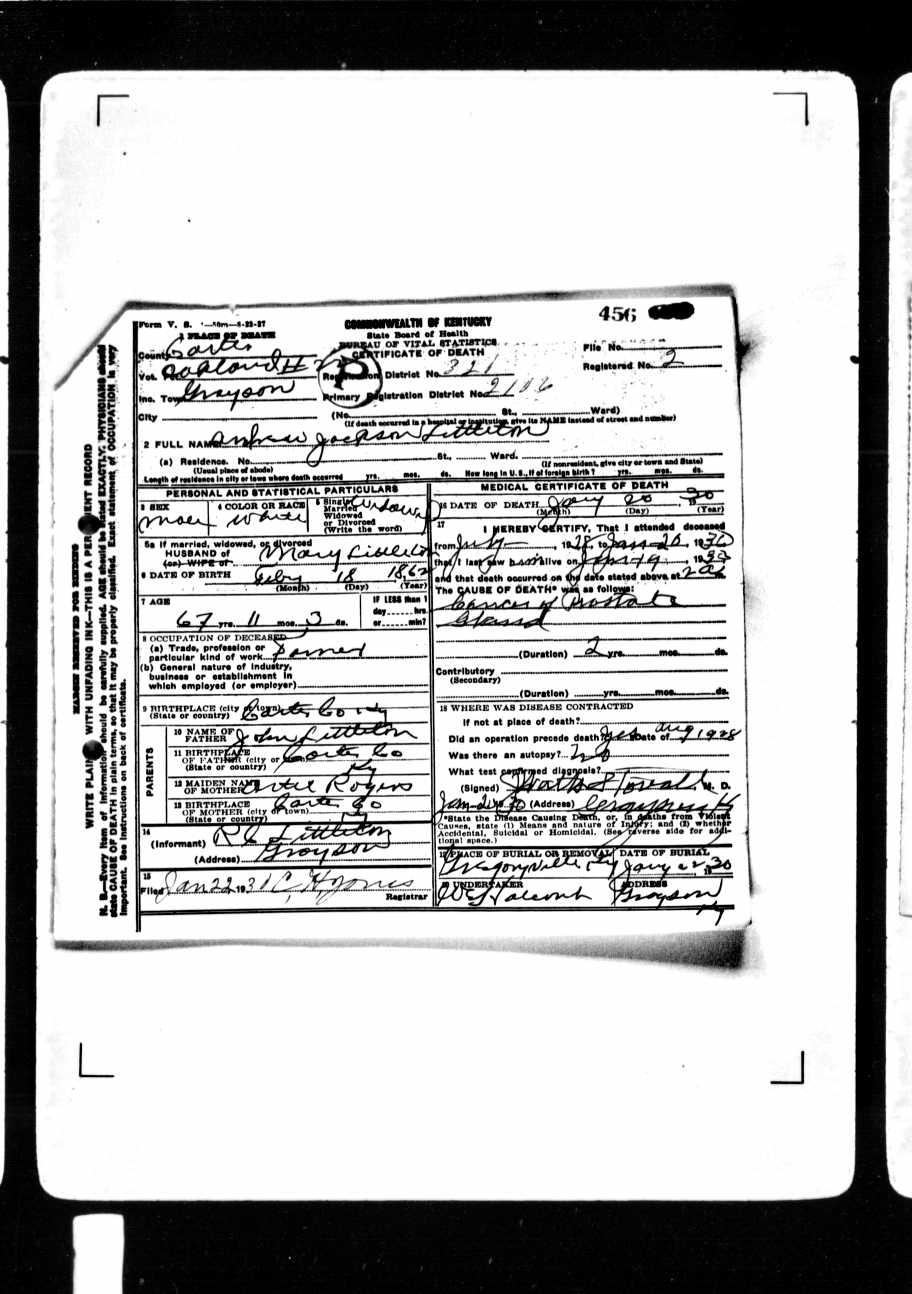 456
Form V. S. 1—50m—8-22-27
COMMONWEALTH OF KENTUCKY
State Board of Health
BUREAU OF VITAL STATISTICS
CERTIFICATE OF DEATH
1 PLACE OF DEATH
County Carter
Vot. Oakland # 2
Inc. Town Grayson
City
File No.
Registered No. 2
Registration District No. 321
Primary Registration District No. 2106
(No. St., Ward)
(If death occurred in a hospital or institution, give its NAME instead of street and number)
2 FULL NAME Andrew Jackson Littleton
(a) Residence. No. St., Ward.
(Usual place of abode) (If nonresident, give city or town and State)
Length of residence in city or town where death occurred yrs. mos. ds. How long in U.S., if of foreign birth? yrs. mos. ds.
PERSONAL AND STATISTICAL PARTICULARS
3 SEX
4 COLOR OR RACE White
5 Single
Married
Widowed
or Divorced
(Write the word)
Widowed
5a If married, widowed, or divorced
HUSBAND of
(or) WIFE of Mary Littleton
6 DATE OF BIRTH Feby 18 1862
(Month) (Day) (Year)
7 AGE
67 yrs. 11 mos. 3 ds.
IF LESS than 1
day hrs.
or min?
8 OCCUPATION OF DECEASED
(a) Trade, profession or
particular kind of work Farmer
(b) General nature of industry,
business or establishment in
which employed (or employer)
9 BIRTHPLACE (city or town)
(State or country) Carter Co Ky
PARENTS
10 NAME OF
FATHER John Littleton
11 BIRTHPLACE
OF FATHER (city or town) Carter Co
(State or country) Ky
12 MAIDEN NAME
OF MOTHER Rogers
13 BIRTHPLACE
OF MOTHER (city or town) Carter Co
(State or country) Ky
14
(Informant) R C Littleton
(Address) Grayson
15
Filed Jan 22 C. H. Jones
Registrar
MEDICAL CERTIFICATE OF DEATH
16 DATE OF DEATH Jany 20, 1930
(Month) (Day) (Year)
17
I HEREBY CERTIFY, That I attended deceased
from July, 1928, to Jan 20, 1930
that I last saw him alive on Jan 19, 1930
and that death occurred on the date stated above, at 2 a m.
The CAUSE OF DEATH* was as follows:
Cancer of Prostate
Gland
(Duration) 2 yrs. mos. ds.
Contributory
(Secondary)
(Duration) yrs. mos. ds.
18 WHERE WAS DISEASE CONTRACTED
If not at place of death?
Did an operation precede death? Yes Date of Aug 1928
Was there an autopsy? No
What test confirmed diagnosis?
(Signed) M. D.
(Address) Grayson Ky
*State the Disease Causing Death, or, in deaths from Violent
Causes, state (1) Means and nature of Injury; and (2) whether
Accidental, Suicidal or Homicidal. (See reverse side for addi-
tional space.)
19 PLACE OF BURIAL OR REMOVAL DATE OF BURIAL
Gregoryville Ky Jany 1930
20 UNDERTAKER ADDRESS
Grayson
Ky
MARGIN RESERVED FOR BINDING
WRITE PLAINLY WITH UNFADING INK—THIS IS A PERMANENT RECORD
N. B.—Every item of information should be carefully supplied. AGE should be stated EXACTLY. PHYSICIANS should
state CAUSE OF DEATH in plain terms, so that it may be properly classified. Exact statement of OCCUPATION is very
important. See instructions on back of certificate.